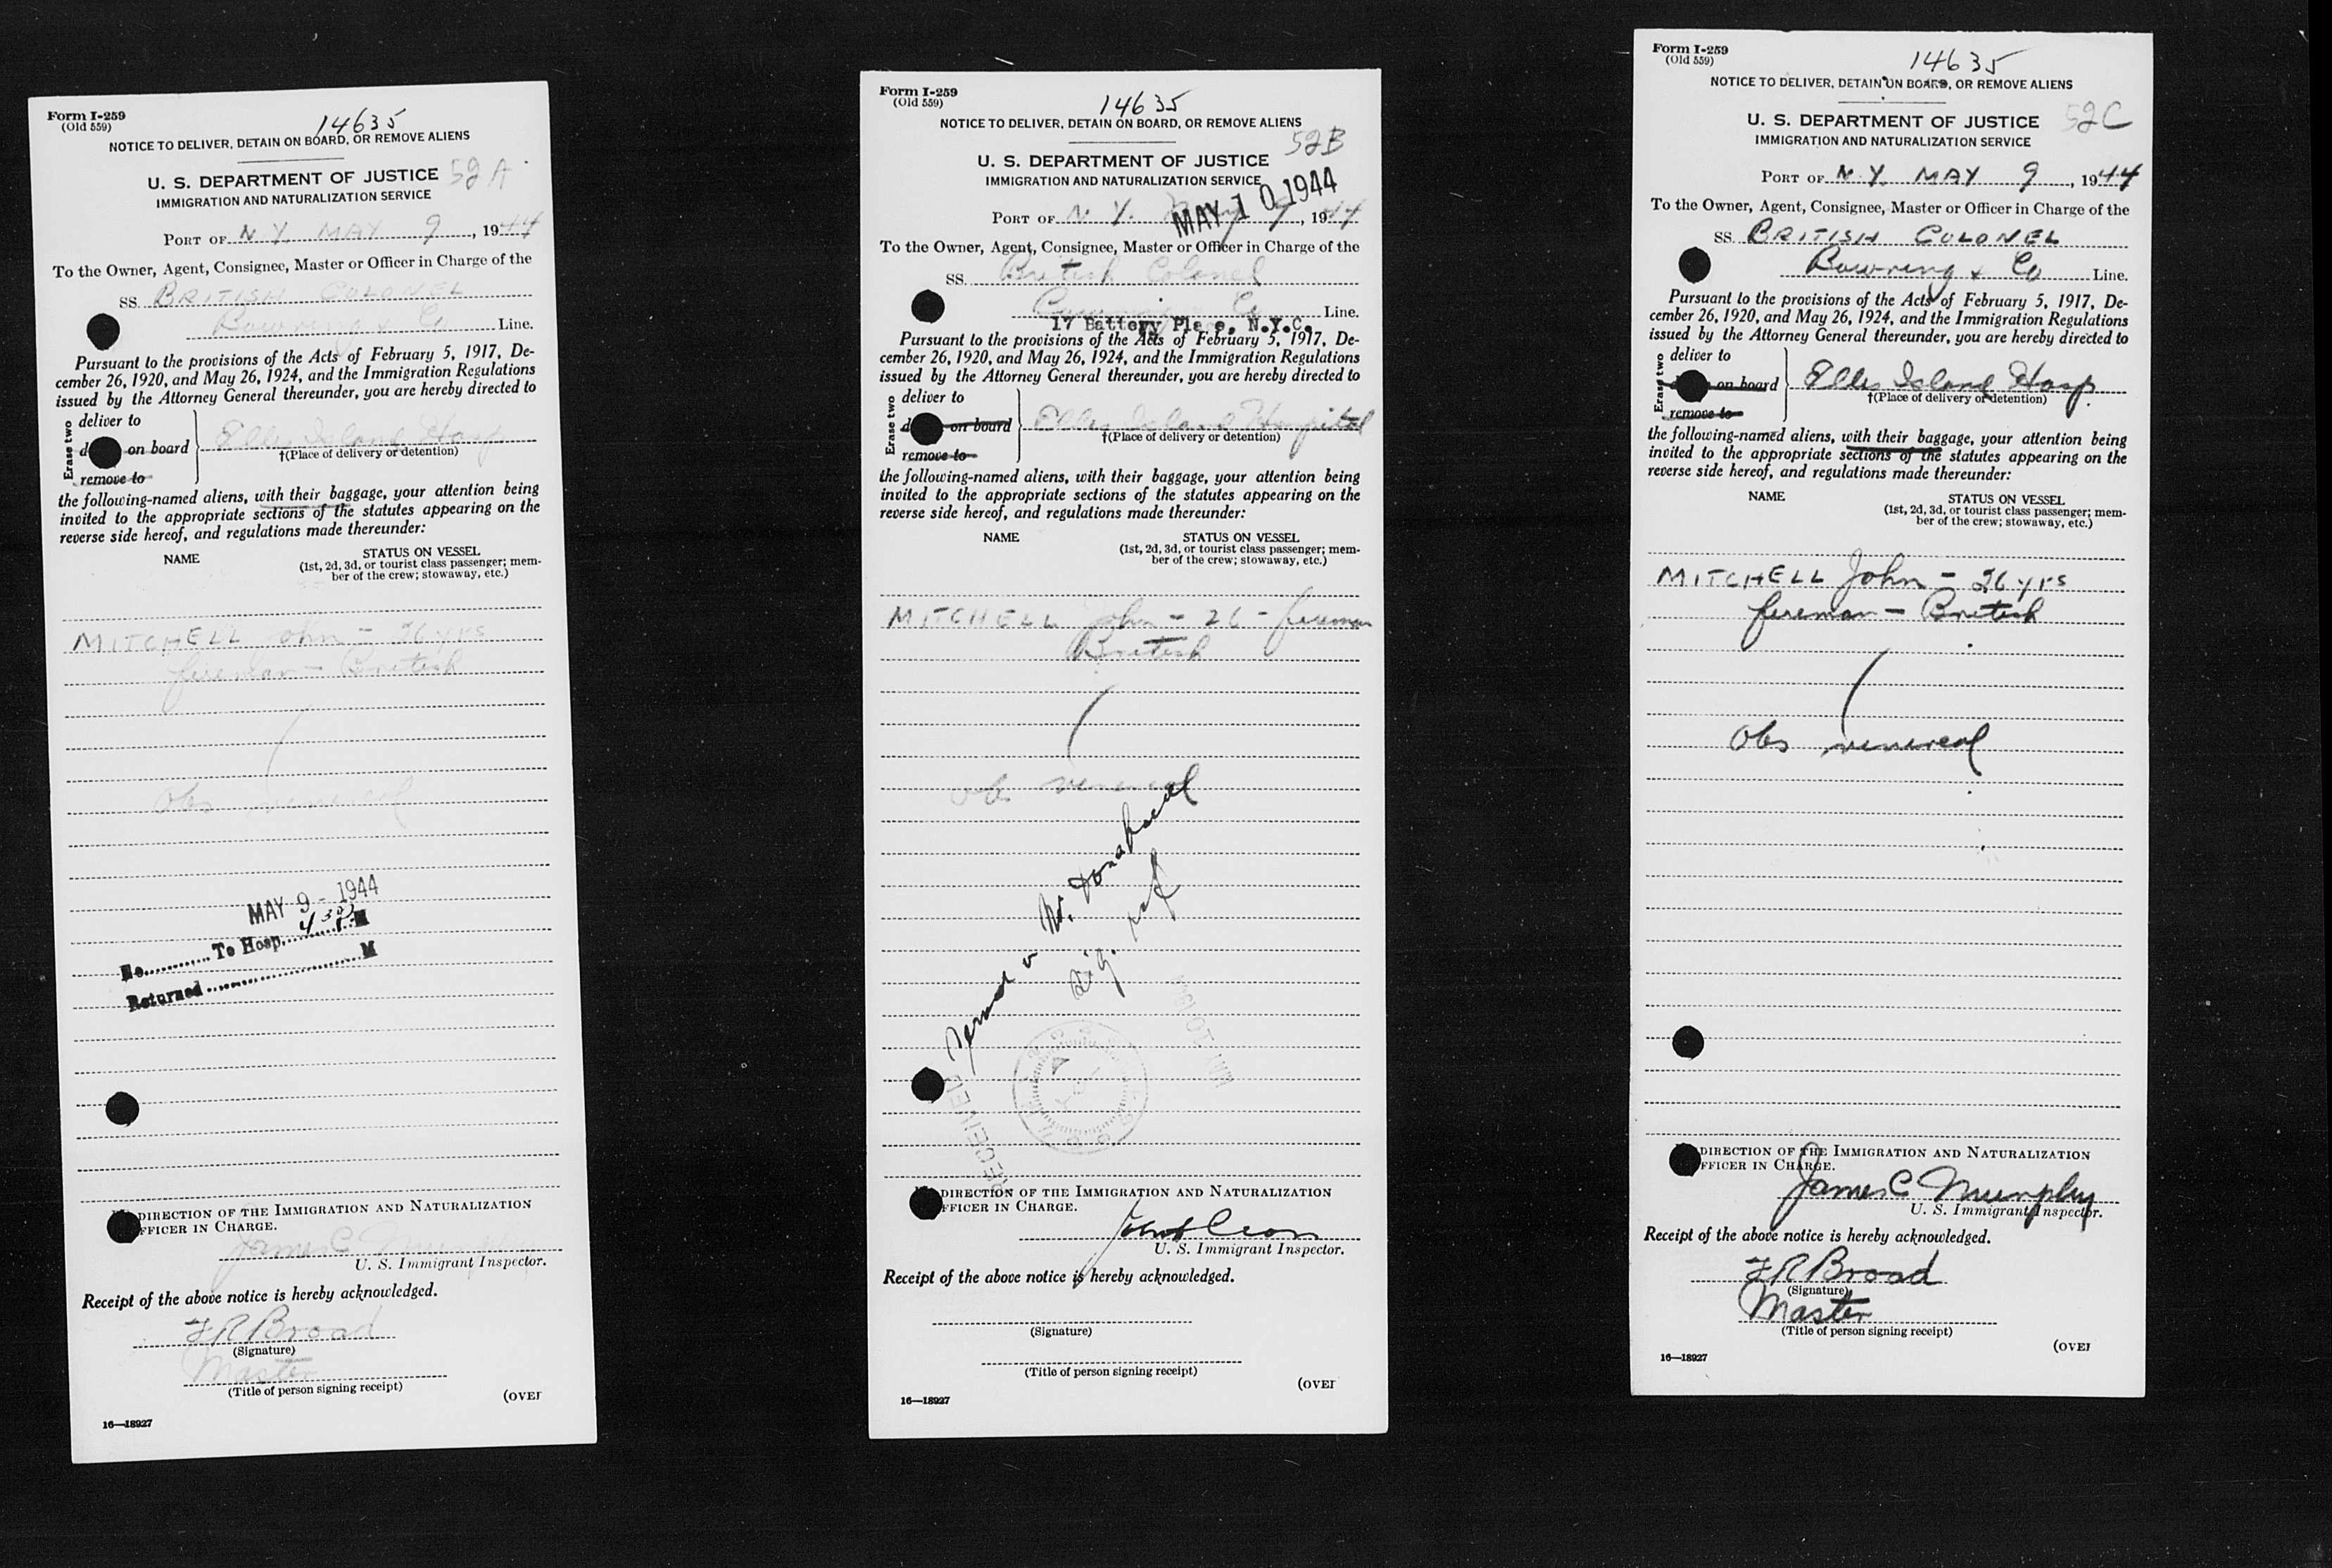 Form I-259
(Old 559)
14635
NOTICE TO DELIVER, DETAIN ON BOARD, OR REMOVE ALIENS
U. S. DEPARTMENT OF JUSTICE
52A
IMMIGRATION AND NATURALIZATION SERVICE
PORT OF N Y. MAY 9, 1944
To the Owner, Agent, Consignee, Master or Officer in Charge of the
SS. BRITISH COLONEL
Bowring & Co Line.
Pursuant to the provisions of the Acts of February 5, 1917, De-
cember 26, 1920, and May 26, 1924, and the Immigration Regulations
issued by the Attorney General thereunder, you are hereby directed to
Erase two
deliver to
on board
Ellis Island Hosp
remove to
†(Place of delivery or detention)
the following-named aliens, with their baggage, your attention being
invited to the appropriate sections of the statutes appearing on the
reverse side hereof, and regulations made thereunder:
NAME
STATUS ON VESSEL
(1st, 2d, 3d, or tourist class passenger; mem-
ber of the crew; stowaway, etc.)
MITCHELL John - 26 yrs
fireman - British
Obs venereal
MAY 9 - 1944
No. To Hosp. 4 30 P M
Returned M
DIRECTION OF THE IMMIGRATION AND NATURALIZATION
FFICER IN CHARGE.
James C
U. S. Immigrant Inspector.
Receipt of the above notice is hereby acknowledged.
F R Broad
(Signature)
Master
(Title of person signing receipt)
(OVER
16—18927
Form I-259
(Old 559)
14635
NOTICE TO DELIVER, DETAIN ON BOARD, OR REMOVE ALIENS
52B
U. S. DEPARTMENT OF JUSTICE
IMMIGRATION AND NATURALIZATION SERVICE
MAY 10 1944
PORT OF N Y. May 9, 1944
To the Owner, Agent, Consignee, Master or Officer in Charge of the
SS. British Colonel
Co Line.
17 Battery Place, N.Y.C.
Pursuant to the provisions of the Acts of February 5, 1917, De-
cember 26, 1920, and May 26, 1924, and the Immigration Regulations
issued by the Attorney General thereunder, you are hereby directed to
Erase two
deliver to
on board
Ellis Island Hospital
remove to
†(Place of delivery or detention)
the following-named aliens, with their baggage, your attention being
invited to the appropriate sections of the statutes appearing on the
reverse side hereof, and regulations made thereunder:
NAME
STATUS ON VESSEL
(1st, 2d, 3d, or tourist class passenger; mem-
ber of the crew; stowaway, etc.)
MITCHELL John - 26 - fireman
British
ob venereal
RECEIVED
MAY 10 1944
DIRECTION OF THE IMMIGRATION AND NATURALIZATION
FFICER IN CHARGE.
U. S. Immigrant Inspector.
Receipt of the above notice is hereby acknowledged.
(Signature)
(Title of person signing receipt)
(OVER
16—18927
Form I-259
(Old 559)
14635
NOTICE TO DELIVER, DETAIN ON BOARD, OR REMOVE ALIENS
U. S. DEPARTMENT OF JUSTICE
52C
IMMIGRATION AND NATURALIZATION SERVICE
PORT OF N Y. MAY 9, 1944
To the Owner, Agent, Consignee, Master or Officer in Charge of the
SS. BRITISH COLONEL
Bowring & Co Line.
Pursuant to the provisions of the Acts of February 5, 1917, De-
cember 26, 1920, and May 26, 1924, and the Immigration Regulations
issued by the Attorney General thereunder, you are hereby directed to
Erase two
deliver to
on board
Ellis Island Hosp.
remove to
†(Place of delivery or detention)
the following-named aliens, with their baggage, your attention being
invited to the appropriate sections of the statutes appearing on the
reverse side hereof, and regulations made thereunder:
NAME
STATUS ON VESSEL
(1st, 2d, 3d, or tourist class passenger; mem-
ber of the crew; stowaway, etc.)
MITCHELL John - 26 yrs
fireman - British
Obs venereal
DIRECTION OF THE IMMIGRATION AND NATURALIZATION
FFICER IN CHARGE.
James C
U. S. Immigrant Inspector.
Receipt of the above notice is hereby acknowledged.
F R Broad
(Signature)
Master
(Title of person signing receipt)
(OVER
16—18927